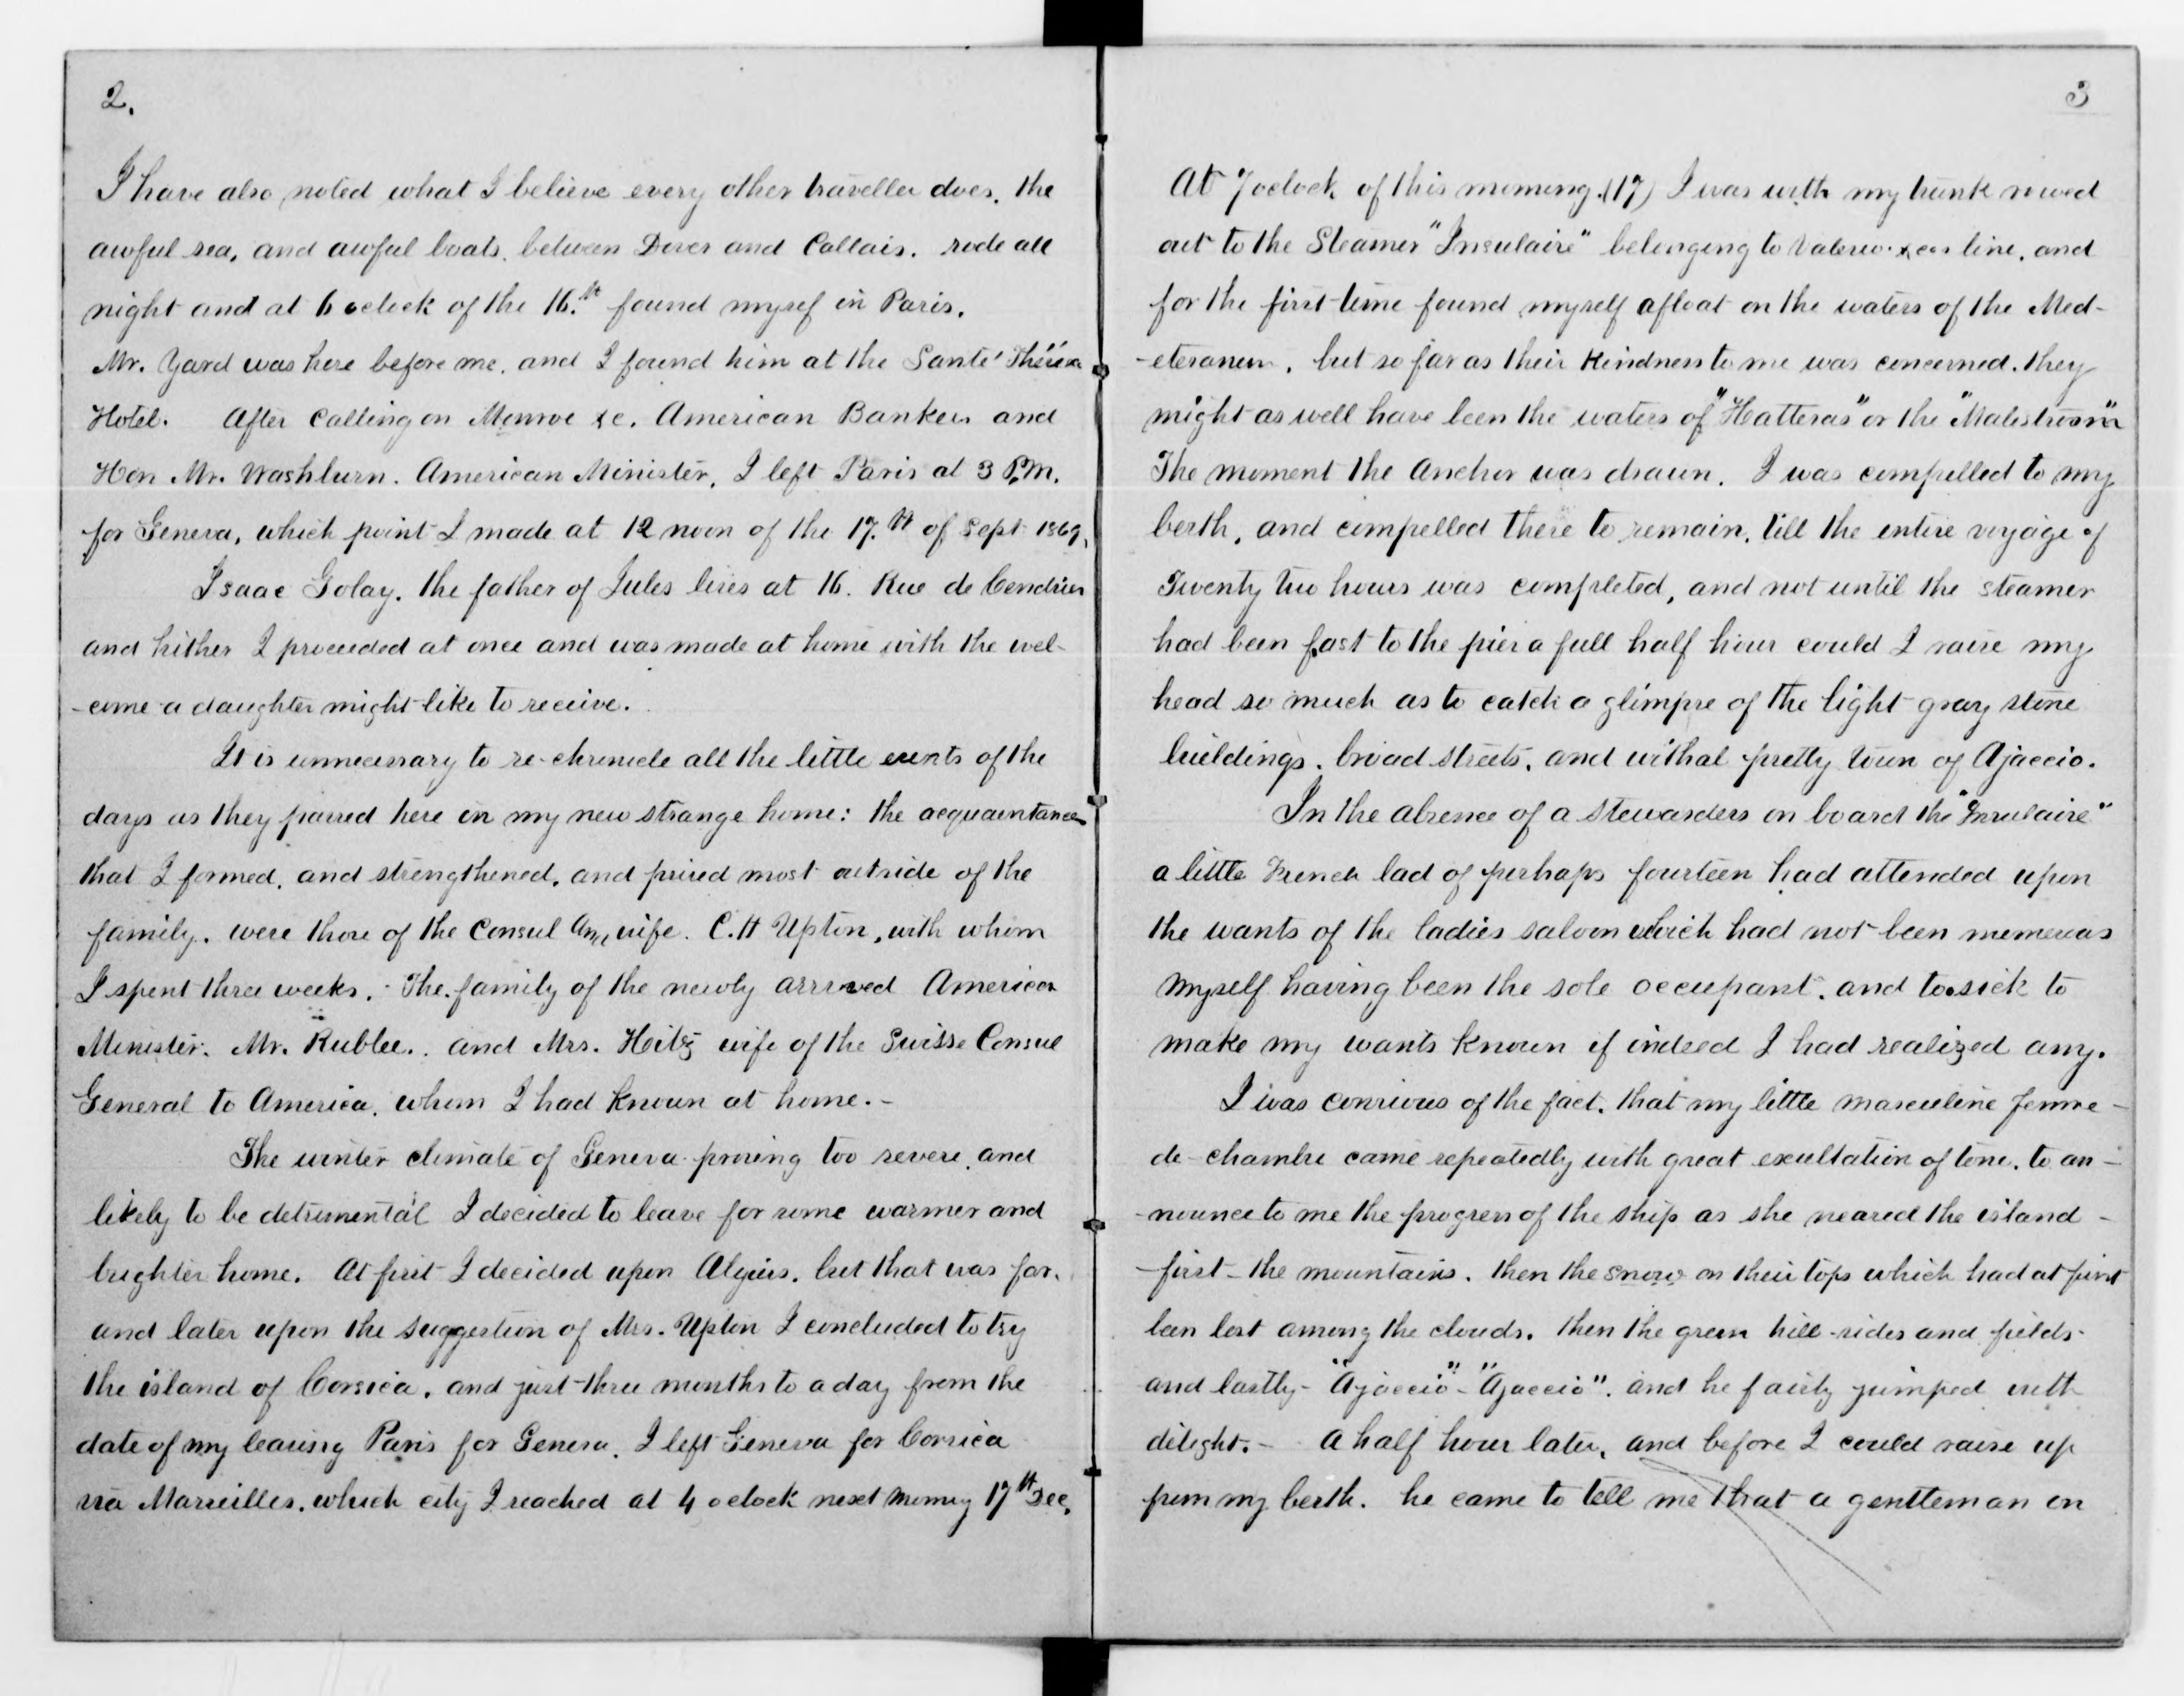 2.
I have also noted what I believe every other traveller does, the
awful sea, and awful boats, between Dover and Callais. rode all
night and at 6 oclock of the 16.th found mysef in Paris.
Mr. Yard was here before me, and I found him at the Santé Thérèse
Hotel. After calling on Monroe &c. American Bankers and
Hon Mr. Washburn. American Minister, I left Paris at 3 P.M.
for Geneva, which point I made at 12 noon of the 17.th of Sept 1869,
Isaac Golay, the father of Jules lives at 16. Rue de Cendrier
and hither I proceeded at once and was made at home with the wel-
-come a daughter might like to receive.
It is unnecessary to re-chronicle all the little events of the
days as they passed here in my new strange home: the acquaintances
that I formed, and strengthened, and prized most outside of the
family, were those of the Consul and wife. C. H Upton, with whom
I spent three weeks. - The family of the newly arrived American
Minister, Mr. Rublee., and Mrs. Heitz wife of the Suisse Consul
General to America, whom I had known at home. -
The winter climate of Geneva proving too severe, and
likely to be detrimental I decided to leave for some warmer and
brighter home. At first I decided upon Algiers, but that was far,
and later upon the suggestion of Mrs. Upton I concluded to try
the island of Corsica, and just three months to a day from the
date of my leaving Paris for Geneva, I left Geneva for Corsica
via Marseilles, which city I reached at 4 oclock next morning 17th Dec,
3
At 7 oclock of this morning (17) I was with my trunk rowed
out to the Steamer "Insulaire" belonging to line, and
for the first time found myself afloat on the waters of the Med-
-eteranen, but so far as their kindness to me was concerned, they
might as well have been the waters of "Hatteras" or the "Malestroom"
The moment the anchor was drawn, I was compelled to my
berth, and compelled there to remain, till the entire voyage of
Twenty two hours was completed, and not until the steamer
had been fast to the pier a full half hour could I raise my
head so much as to catch a glimpse of the light gray stone
buildings, broad streets, and withal pretty town of Ajaccio.
In the absence of a stewardess on board the "Insulaire"
a little French lad of perhaps fourteen had attended upon
the wants of the ladies saloon which had not been numerous
myself having been the sole occupant, and too sick to
make my wants known if indeed I had realized any.
I was conscious of the fact, that my little masculine femme-
de-chambre came repeatedly with great exultation of tone, to an-
-nounce to me the progress of the ship as she neared the island -
first - the mountains, then the snow on their tops which had at first
been lost among the clouds, then the green hill-sides and fields-
and lastly - "Ajaccio" - "Ajaccio", and he fairly jumped with
delight. - A half hour later, and before I could raise up
from my berth, he came to tell me that a gentleman on